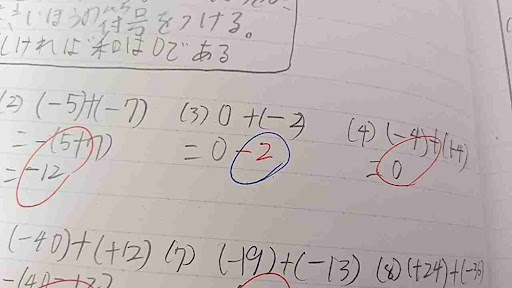 きいほうの符号をつける。
しければ和は0である
(2) (-5)+(-7)
= -(5+7)
= -12
(3) 0 +(-2)
= 0 -2
(4) (-4)+(+4)
= 0
(-40)+(+12)
(7) (-19)+(-13)
(8) (+24)+(-36)